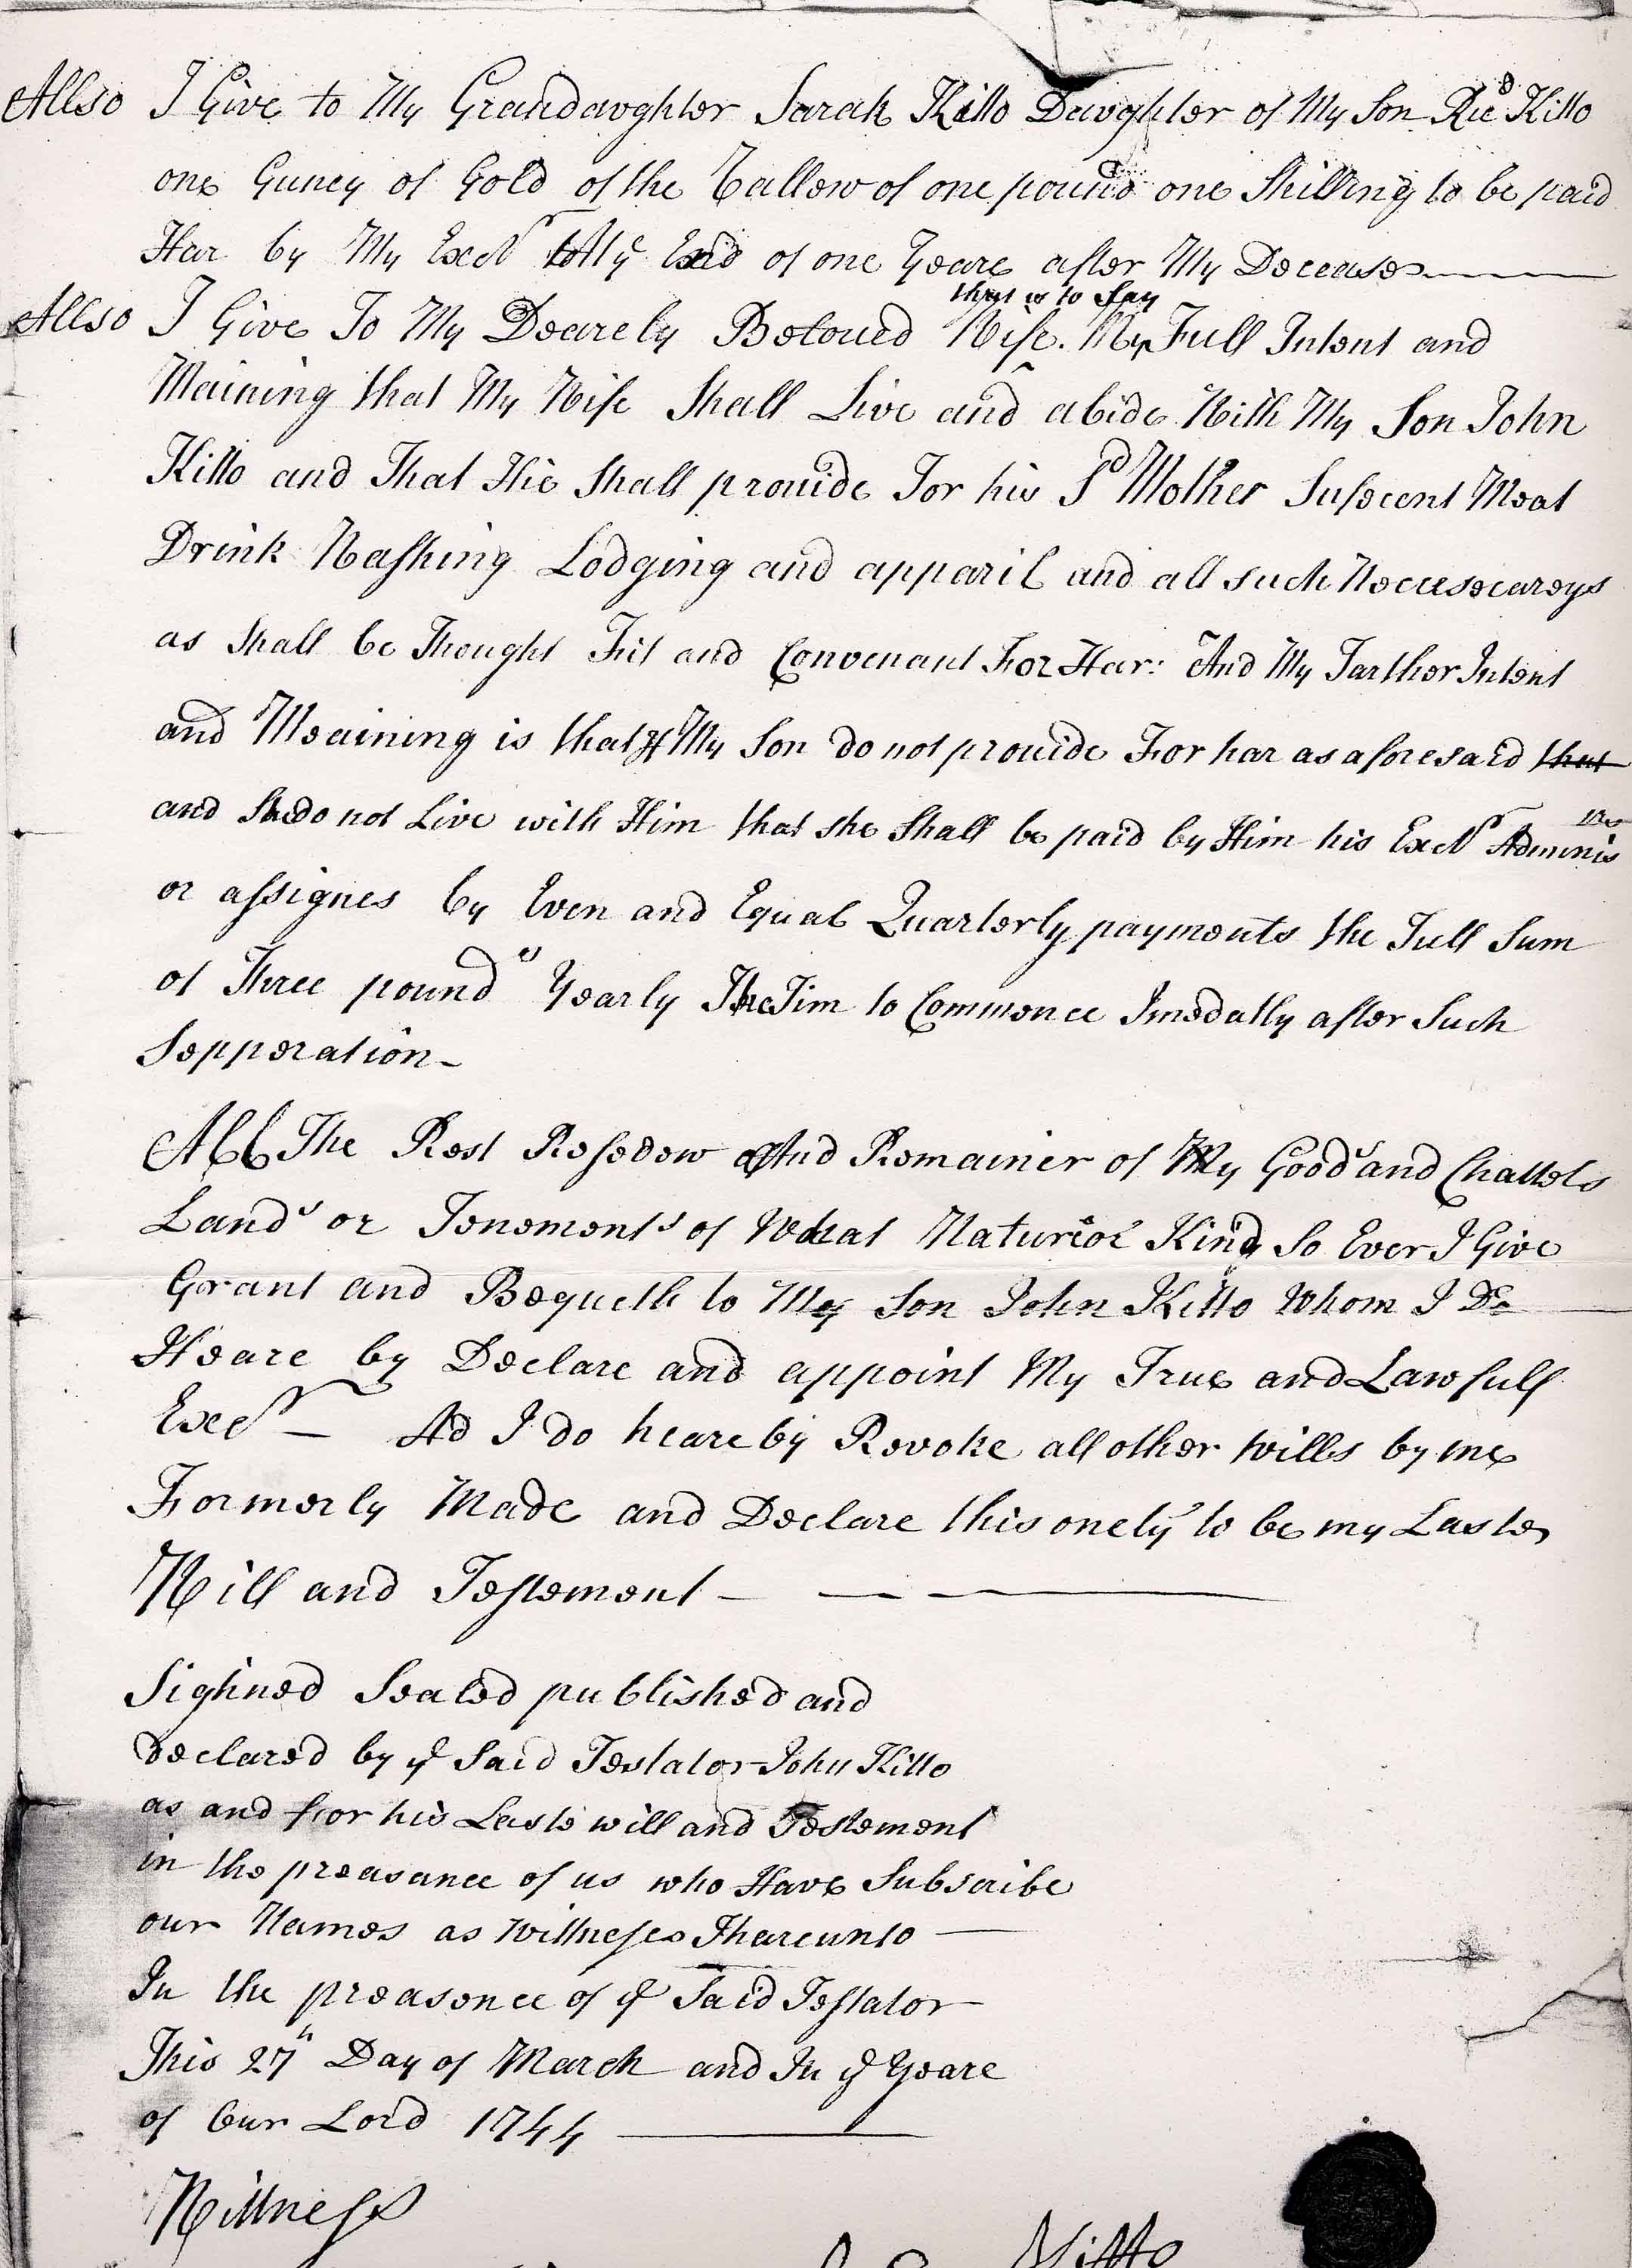 Allso I Give to My Grandaughter Sarah Kitto Daughter of My Son Ric^d Kitto
one Guney of Gold of the Vallew of one pound one Shilling to be paid
Har by My Exec^r att y^e End of one Yeare after My Decease
that is to say
Allso I Give To My Dearely Beloved Wife. My Full Intent and
Maining that My Wife Shall Live and abide With My Son John
Kitto and That Hie Shall provide For his S^d Mother Suffecent Meat
Drink Washing Lodging and apparil and all such Necessecareys
as Shall be Thought Fit and Convenant For Har: And My Farther Intent
and Meaining is that if My Son do not provide For har as aforesaid that
and She do not Live with Him that she Shall be paid by Him his Exec^r Adminis^trs
or assignes by Even and Equal Quarterly payments the Full Sum
of Three pound^s Yearly The Tim to Commence Imedatly after Such
Sepperation
All The Rest Resedew And Remainer of My Good^s and Chattels
Land^s or Tenement^s of What Nature or Kind So Ever I Give
Grant and Bequeth to My Son John Kitto Whom I Do
Heare by Declare and appoint My True and Lawfull
Exec^r Ad I do heareby Revoke all other Wills by me
Formerly Made and Declare this onely to be my Laste
Will and Testement
Sighned Sealed published and
Declared by y^e Said Testator John Kitto
as and for his Laste will and Testement
in the preasance of us who Have Subscribe
our Names as Wittneses Thareunto
In the preasence of y^e Said Testator
This 27^th Day of March and In y^e Yeare
of Our Lord 1744
Wittness
Kitto